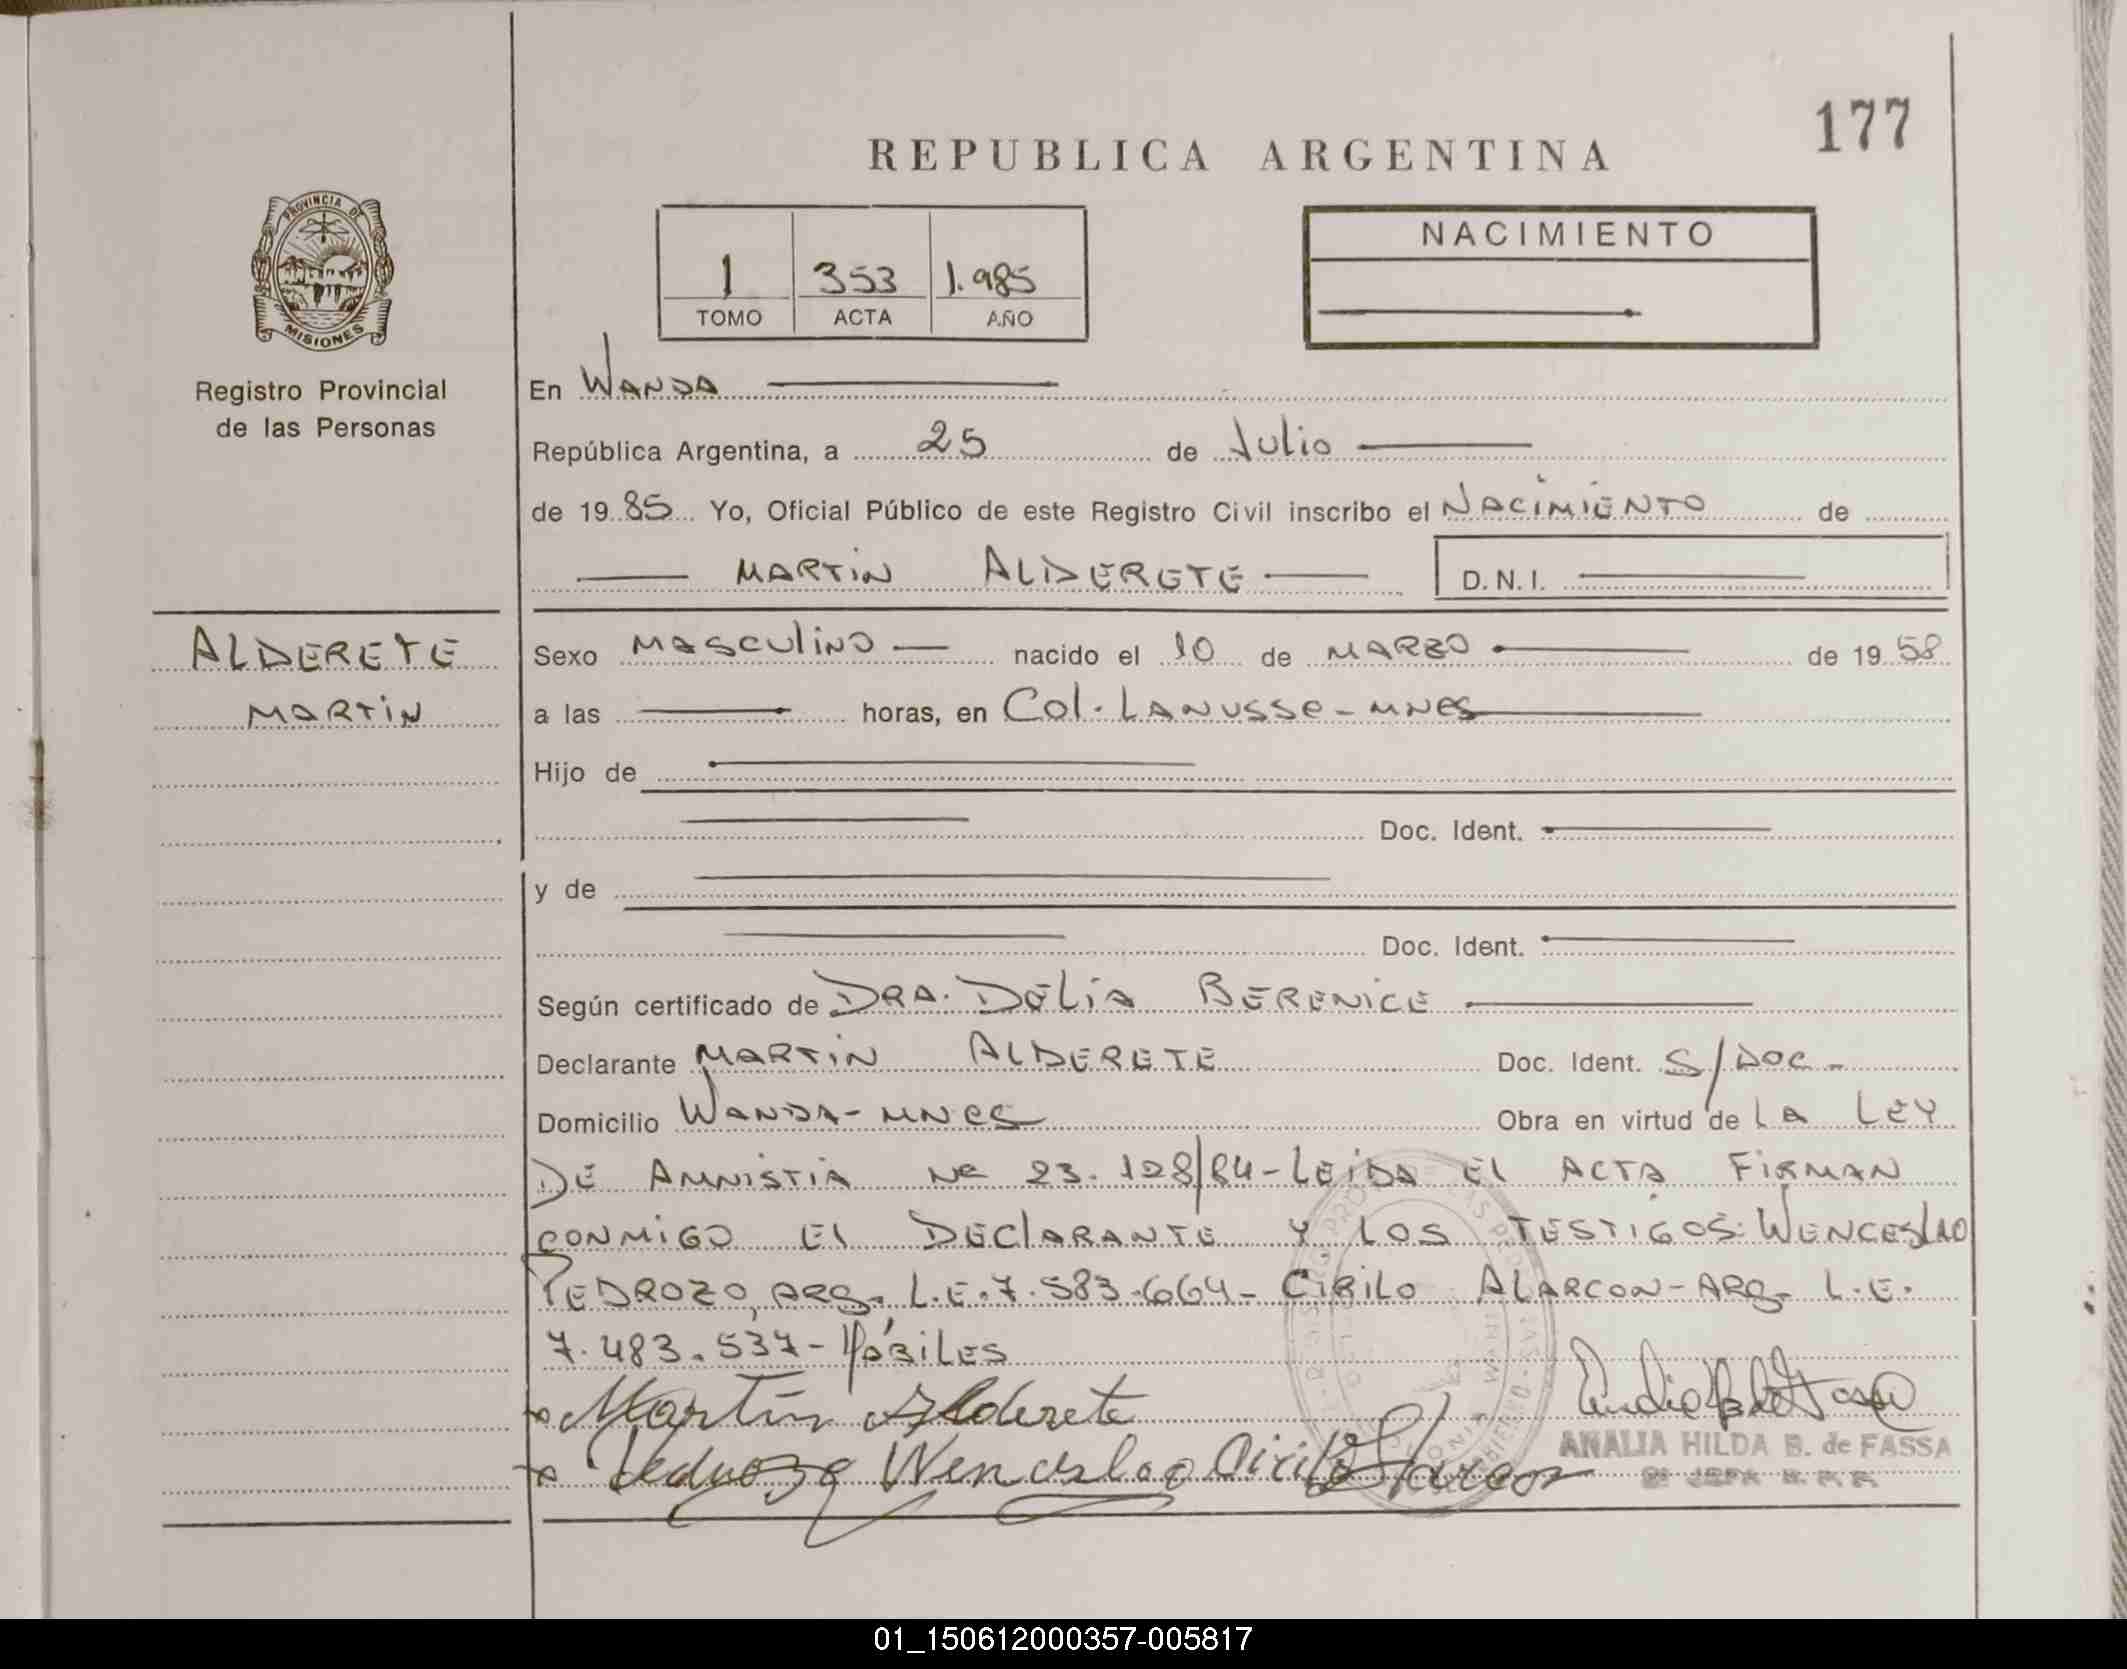 177
REPUBLICA ARGENTINA
PROVINCIA DE
MISIONES
1 353 1.985
TOMO ACTA AÑO
NACIMIENTO
Registro Provincial
de las Personas
En WANDA
República Argentina, a 25 de Julio
de 19 85 Yo, Oficial Público de este Registro Civil inscribo el NACIMIENTO de
MARTIN ALDERETE D.N.I.
ALDERETE
MARTIN
Sexo MASCULINO nacido el 10 de MARZO de 19 58
a las horas, en Col. LANUSSE - MNES
Hijo de
Doc. Ident.
y de
Doc. Ident.
Según certificado de DRA. DELIA BERENICE
Declarante MARTIN ALDERETE Doc. Ident. S/DOC -
Domicilio WANDA - MNES Obra en virtud de LA LEY
DE AMNISTIA Nº 23.128/84 - LEIDA EL ACTA FIRMAN
CONMIGO EL DECLARANTE Y LOS TESTIGOS: WENCESLAO
PEDROZO, ARG. L.E. 7.583.664 - CIRILO ALARCON - ARG. L.E.
7.483.537 - HÁBILES
Martín Alderete
Pedrozo Wenceslao Cirilo Alarcon
ANALIA HILDA B. de FASSA
01_150612000357-005817